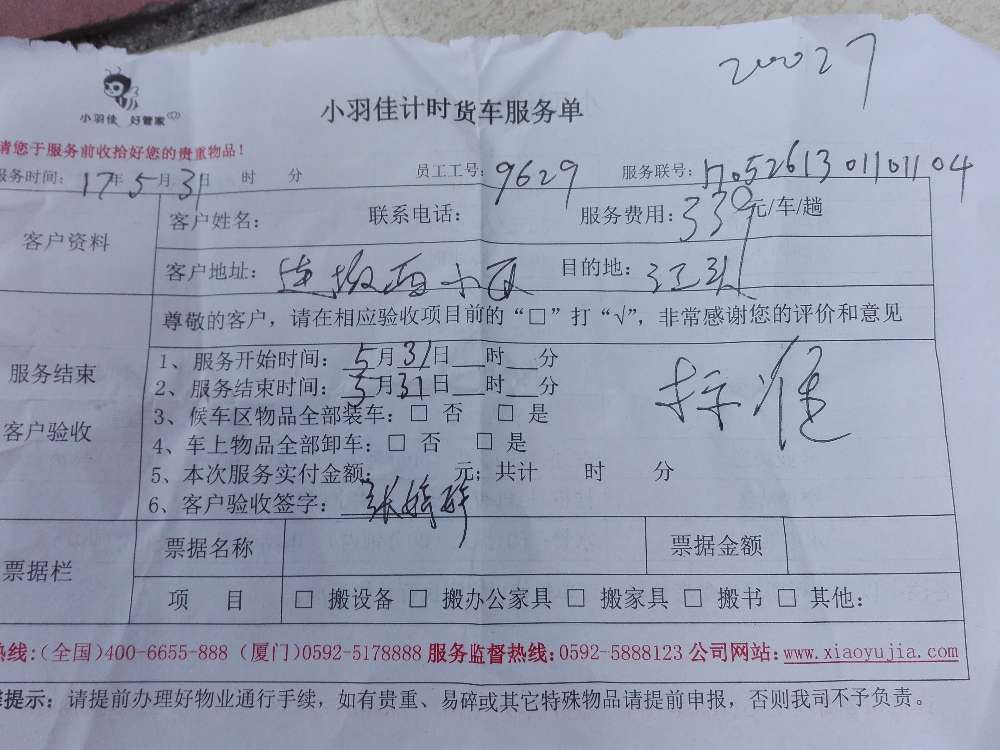 20027
小羽佳 好管家
小羽佳计时货车服务单
请您于服务前收拾好您的贵重物品！
服务时间：17年5月31日 时 分 员工工号：9629 服务联号：No5261301101104
客户资料
客户姓名： 联系电话： 服务费用：330元/车/趟
客户地址：莲坂西小区 目的地：江头
尊敬的客户，请在相应验收项目前的“□”打“√”，非常感谢您的评价和意见
服务结束
客户验收
1、服务开始时间：5月31日__时__分
2、服务结束时间：5月31日__时__分
3、候车区物品全部装车：□ 否 □ 是
4、车上物品全部卸车：□ 否 □ 是
5、本次服务实付金额： 元；共计 时 分
6、客户验收签字：张婷婷
标准
票据栏
票据名称 票据金额
项 目 □ 搬设备 □ 搬办公家具 □ 搬家具 □ 搬书 □ 其他：
热线：(全国)400-6655-888 (厦门)0592-5178888 服务监督热线：0592-5888123 公司网站：www.xiaoyujia.com
提示：请提前办理好物业通行手续，如有贵重、易碎或其它特殊物品请提前申报，否则我司不予负责。